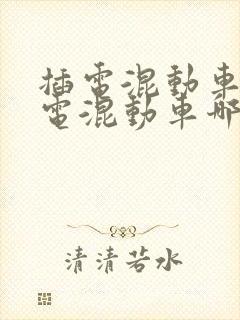 插電混動車
電混動車哪
清清若水